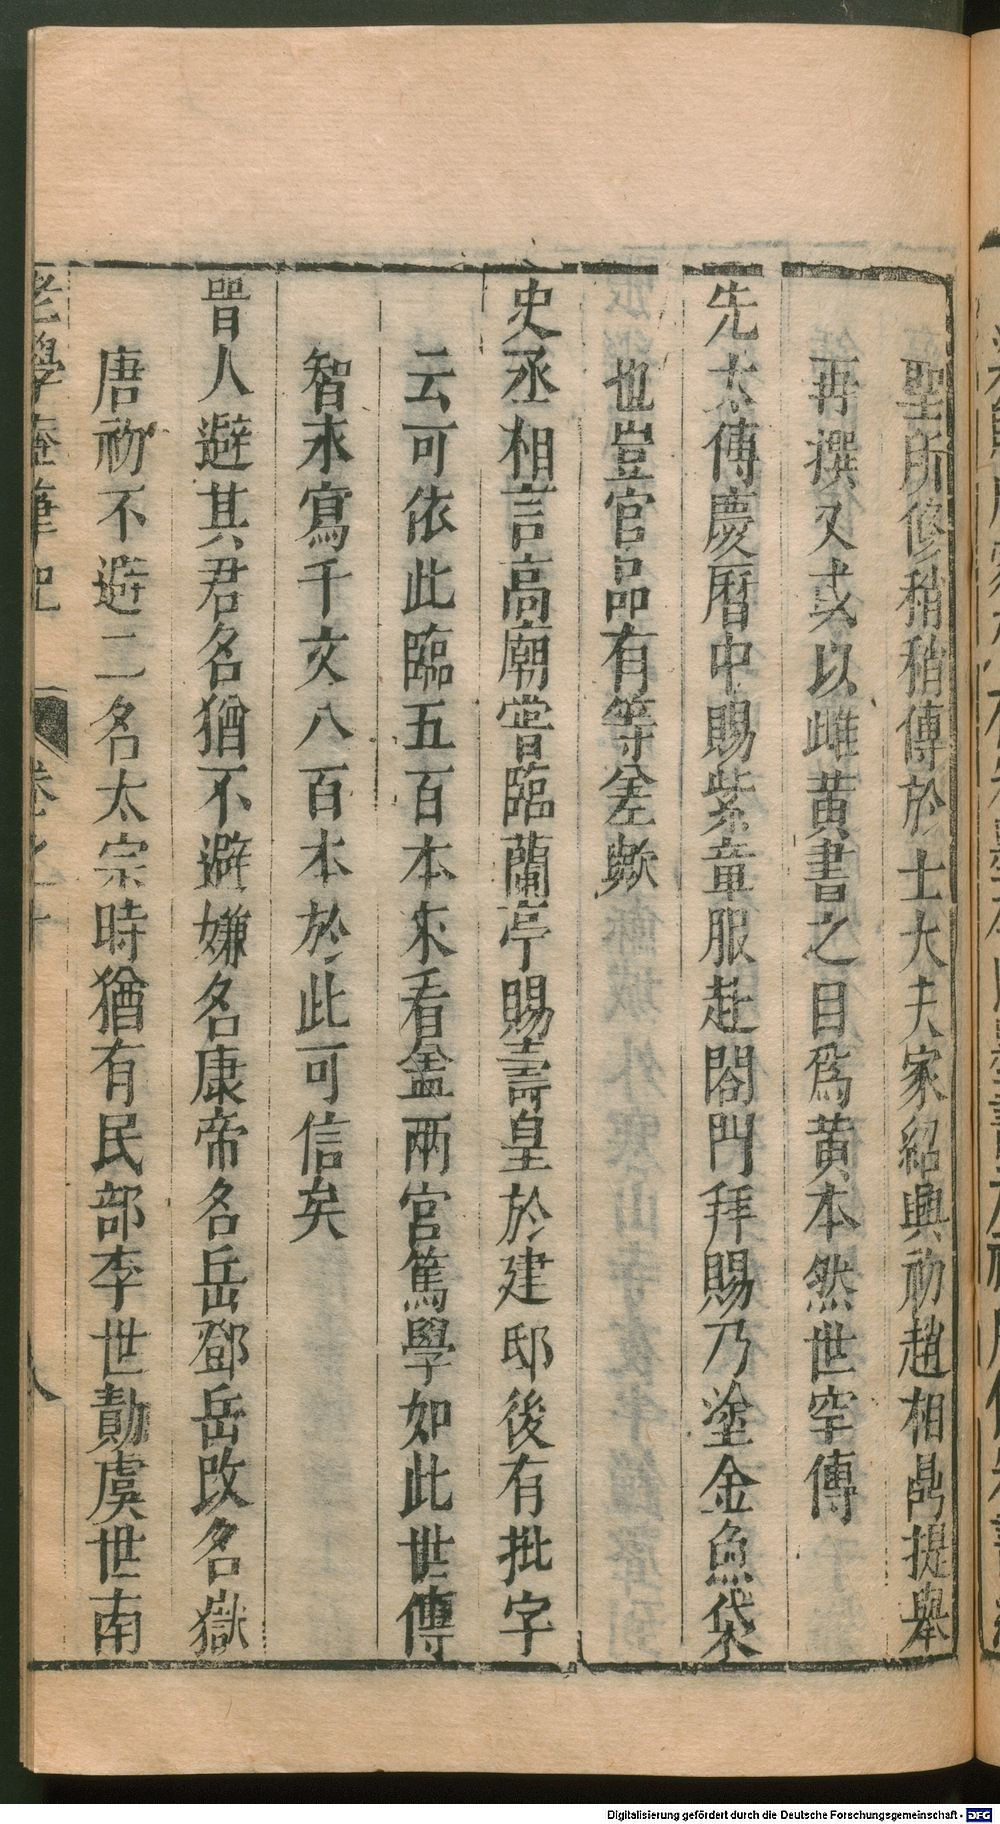 聖所修稍稍傳於士大夫家紹興初趙相鼎提舉
再撰又或以雌黃書之目爲黃本然世罕傳
先太傅慶曆中賜紫章服赴閤門拜賜乃塗金魚袋
也豈官品有等差歟
史丞相言高廟嘗臨蘭亭賜壽皇於建邸後有批字
云可依此臨五百本來看盖兩宮篤學如此世傳
智永寫千文八百本於此可信矣
晉人避其君名猶不避嫌名康帝名岳鄧岳改名嶽
唐初不避二名太宗時猶有民部李世勣虞世南
老學庵筆記 卷之十 八
Digitalisierung gefördert durch die Deutsche Forschungsgemeinschaft - DFG